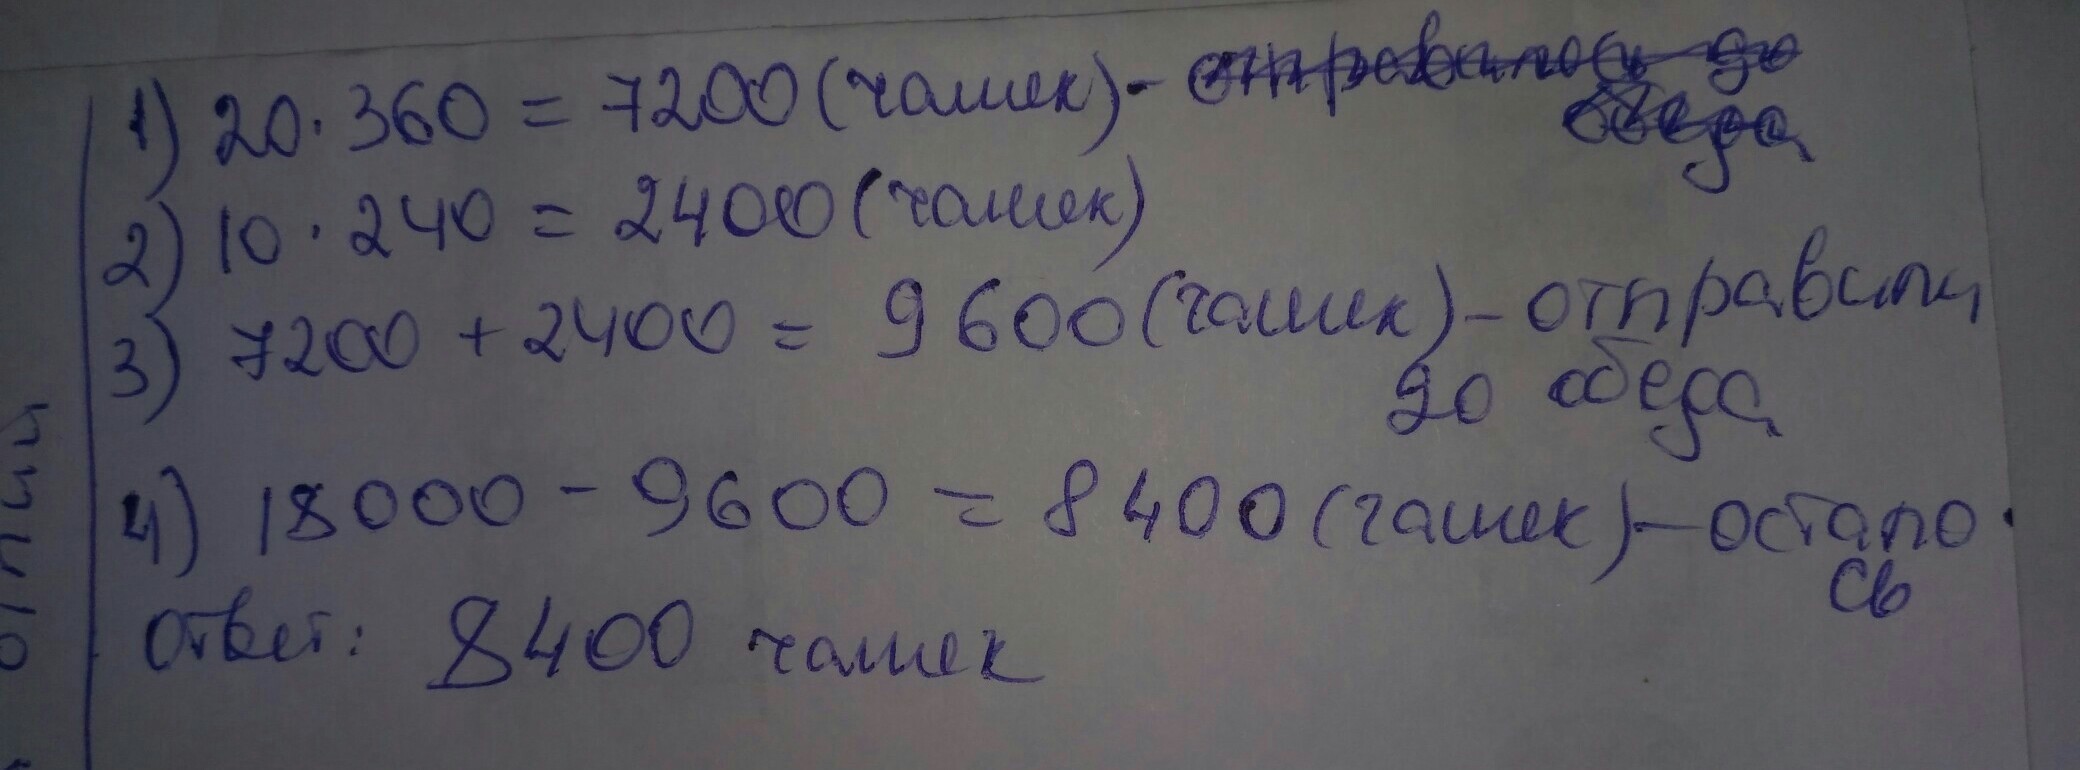 1) 20 · 360 = 7200 (чашек) - отправилось до
обеда
2) 10 · 240 = 2400 (чашек)
3) 7200 + 2400 = 9600 (чашек) - отправили
до обеда
4) 18000 - 9600 = 8400 (чашек) - остало
сь
Ответ: 8400 чашек